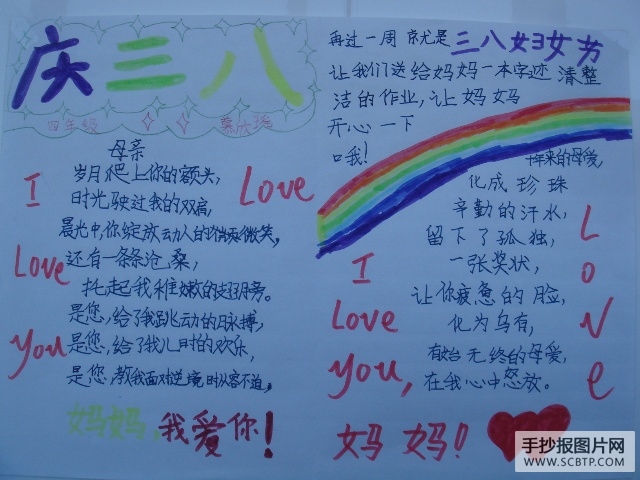 庆三八
四年级
母亲
岁月爬上你的额头,
时光驶过我的双肩,
晨光中,你绽放动人的微笑,
还有一条条沧桑,
托起我稚嫩的翅膀。
是您,给了我跳动的脉搏,
是您,给了我儿时的欢乐,
是您,教我面对逆境时从容不迫,
I
Love
Love
you
妈妈,我爱你!
再过一周 就是三八妇女节
让我们送给妈妈一本字迹 清整
洁的作业,让妈妈
开心一下
哦!
年来的母爱,
化成珍珠
辛勤的汗水,
留下了孤独,
一张奖状,
让你疲惫的脸,
化为乌有,
有始无终的母爱,
在我心中怒放。
I
Love
you,
LoVe
妈妈!
手抄报图片网
WWW.SCBTP.COM